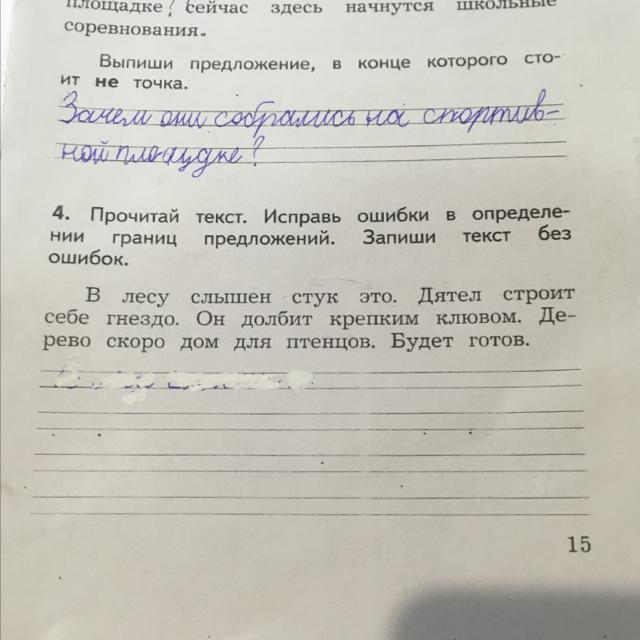 площадке? сейчас здесь начнутся школьные
соревнования.
Выпиши предложение, в конце которого сто-
ит не точка.
Зачем они собрались на спортив-
ной площадке?
4. Прочитай текст. Исправь ошибки в определе-
нии границ предложений. Запиши текст без
ошибок.
В лесу слышен стук это. Дятел строит
себе гнездо. Он долбит крепким клювом. Де-
рево скоро дом для птенцов. Будет готов.
15